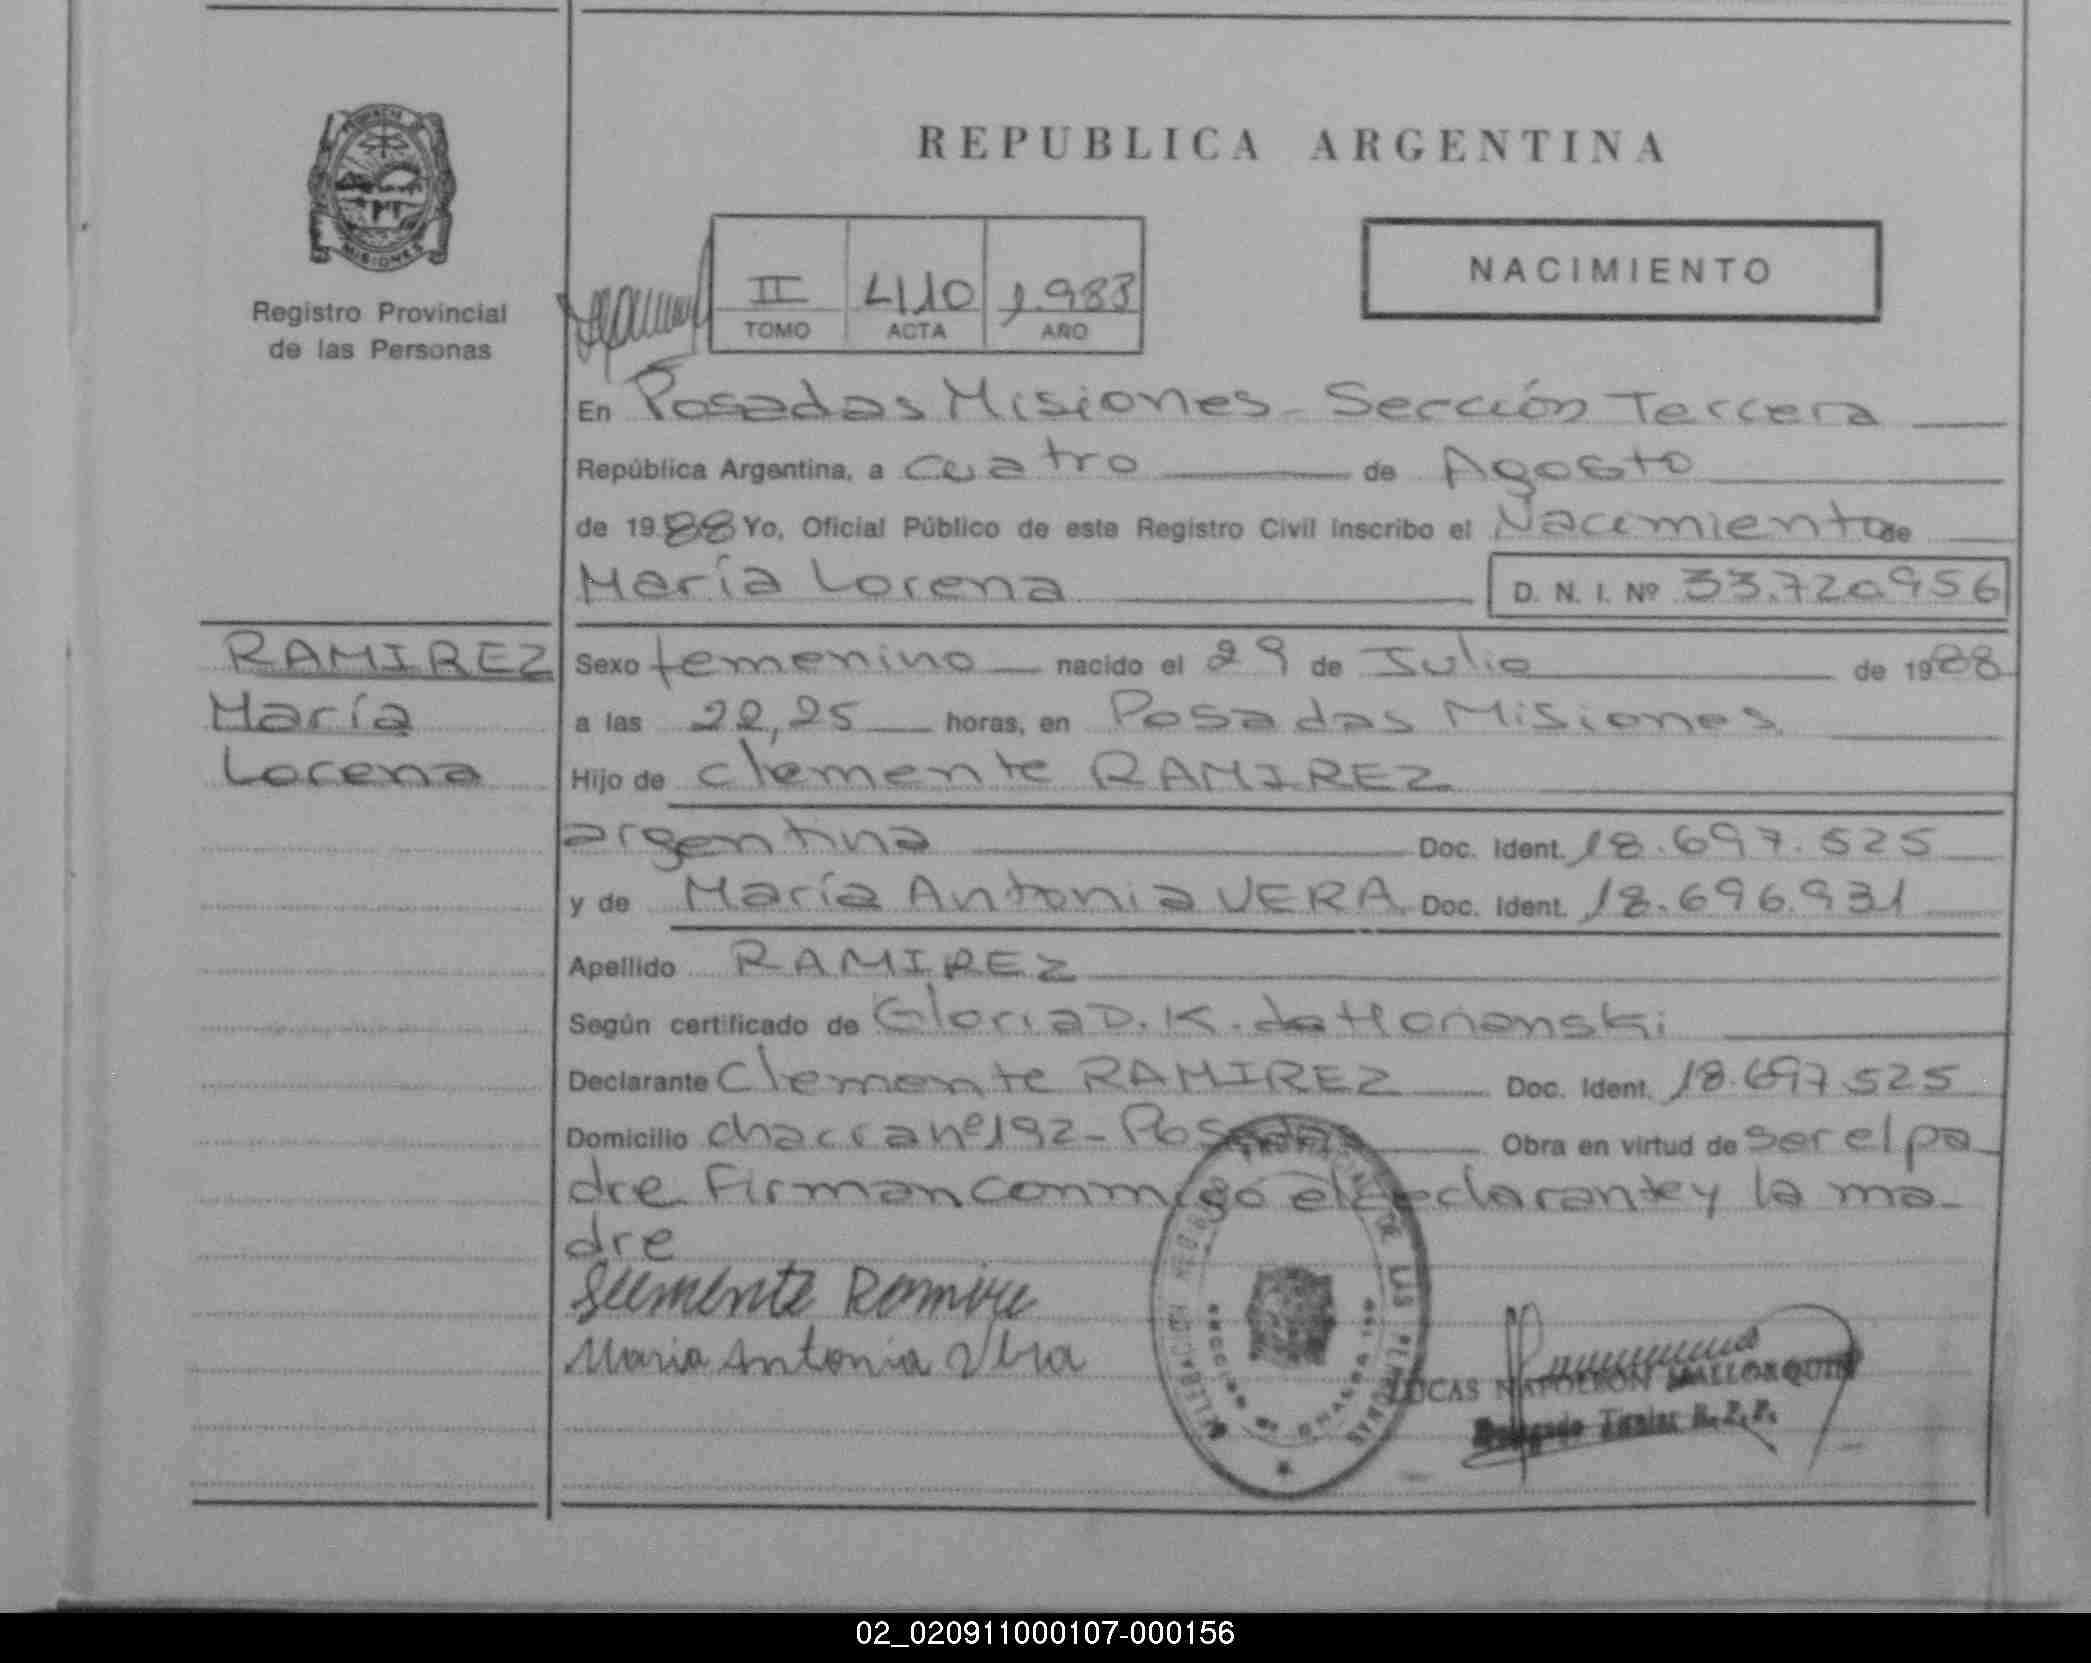 REPUBLICA ARGENTINA
PROVINCIA
MISIONES
Registro Provincial
de las Personas
II 410 1.983
TOMO ACTA AÑO
NACIMIENTO
En Posadas Misiones - Sección Tercera
República Argentina, a cuatro de Agosto
de 1988 Yo, Oficial Público de este Registro Civil inscribo el Nacimiento de
María Lorena D. N. I. Nº 33.720.956
RAMIREZ
María
Lorena
Sexo femenino nacido el 29 de Julio de 1988
a las 22,25 horas, en Posadas Misiones
Hijo de Clemente RAMIREZ
argentina Doc. Ident. 18.697.525
y de María Antonia VERA Doc. Ident. 18.696.931
Apellido RAMIREZ
Según certificado de Gloria D. K. de
Declarante Clemente RAMIREZ Doc. Ident. 18.697.525
Domicilio chacra nº 192 - Posadas Obra en virtud de ser el pa
dre Firman conmigo el declarante y la ma-
dre
Clemente Ramirez
Maria Antonia Vera
DE LAS PERSONAS
LUCAS NAPOLEON MALLORQUIN
Delegado Titular R. P. P.
02_020911000107-000156